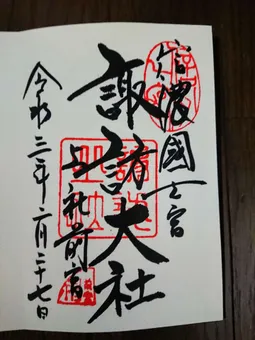 信濃國一之宮
諏訪大社
上社前宮
令和三年二月二十七日